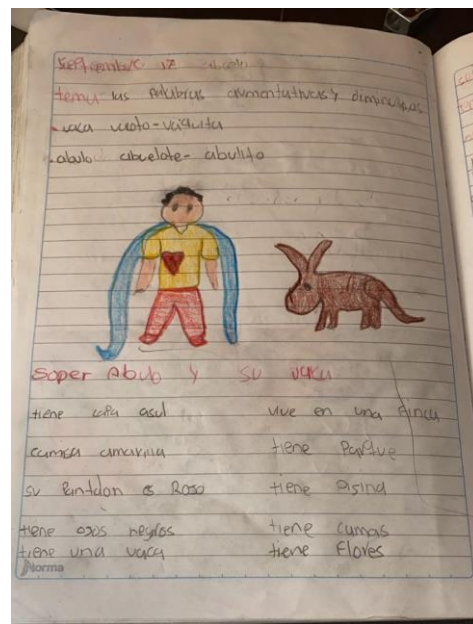 Septiembre 17 abuelo
tema las Palabras aumentativas y diminutivas
- vaca vacota - vaiquita
- abulo abuelote - abulito
Soper Abulo y su vaca
tiene capa asul
camisa amarilla
su Pantalon es Roso
tiene ogos negros
tiene una vaca
vive en una Finca
tiene Parque
tiene Pisina
tiene camas
tiene Flores
Norma